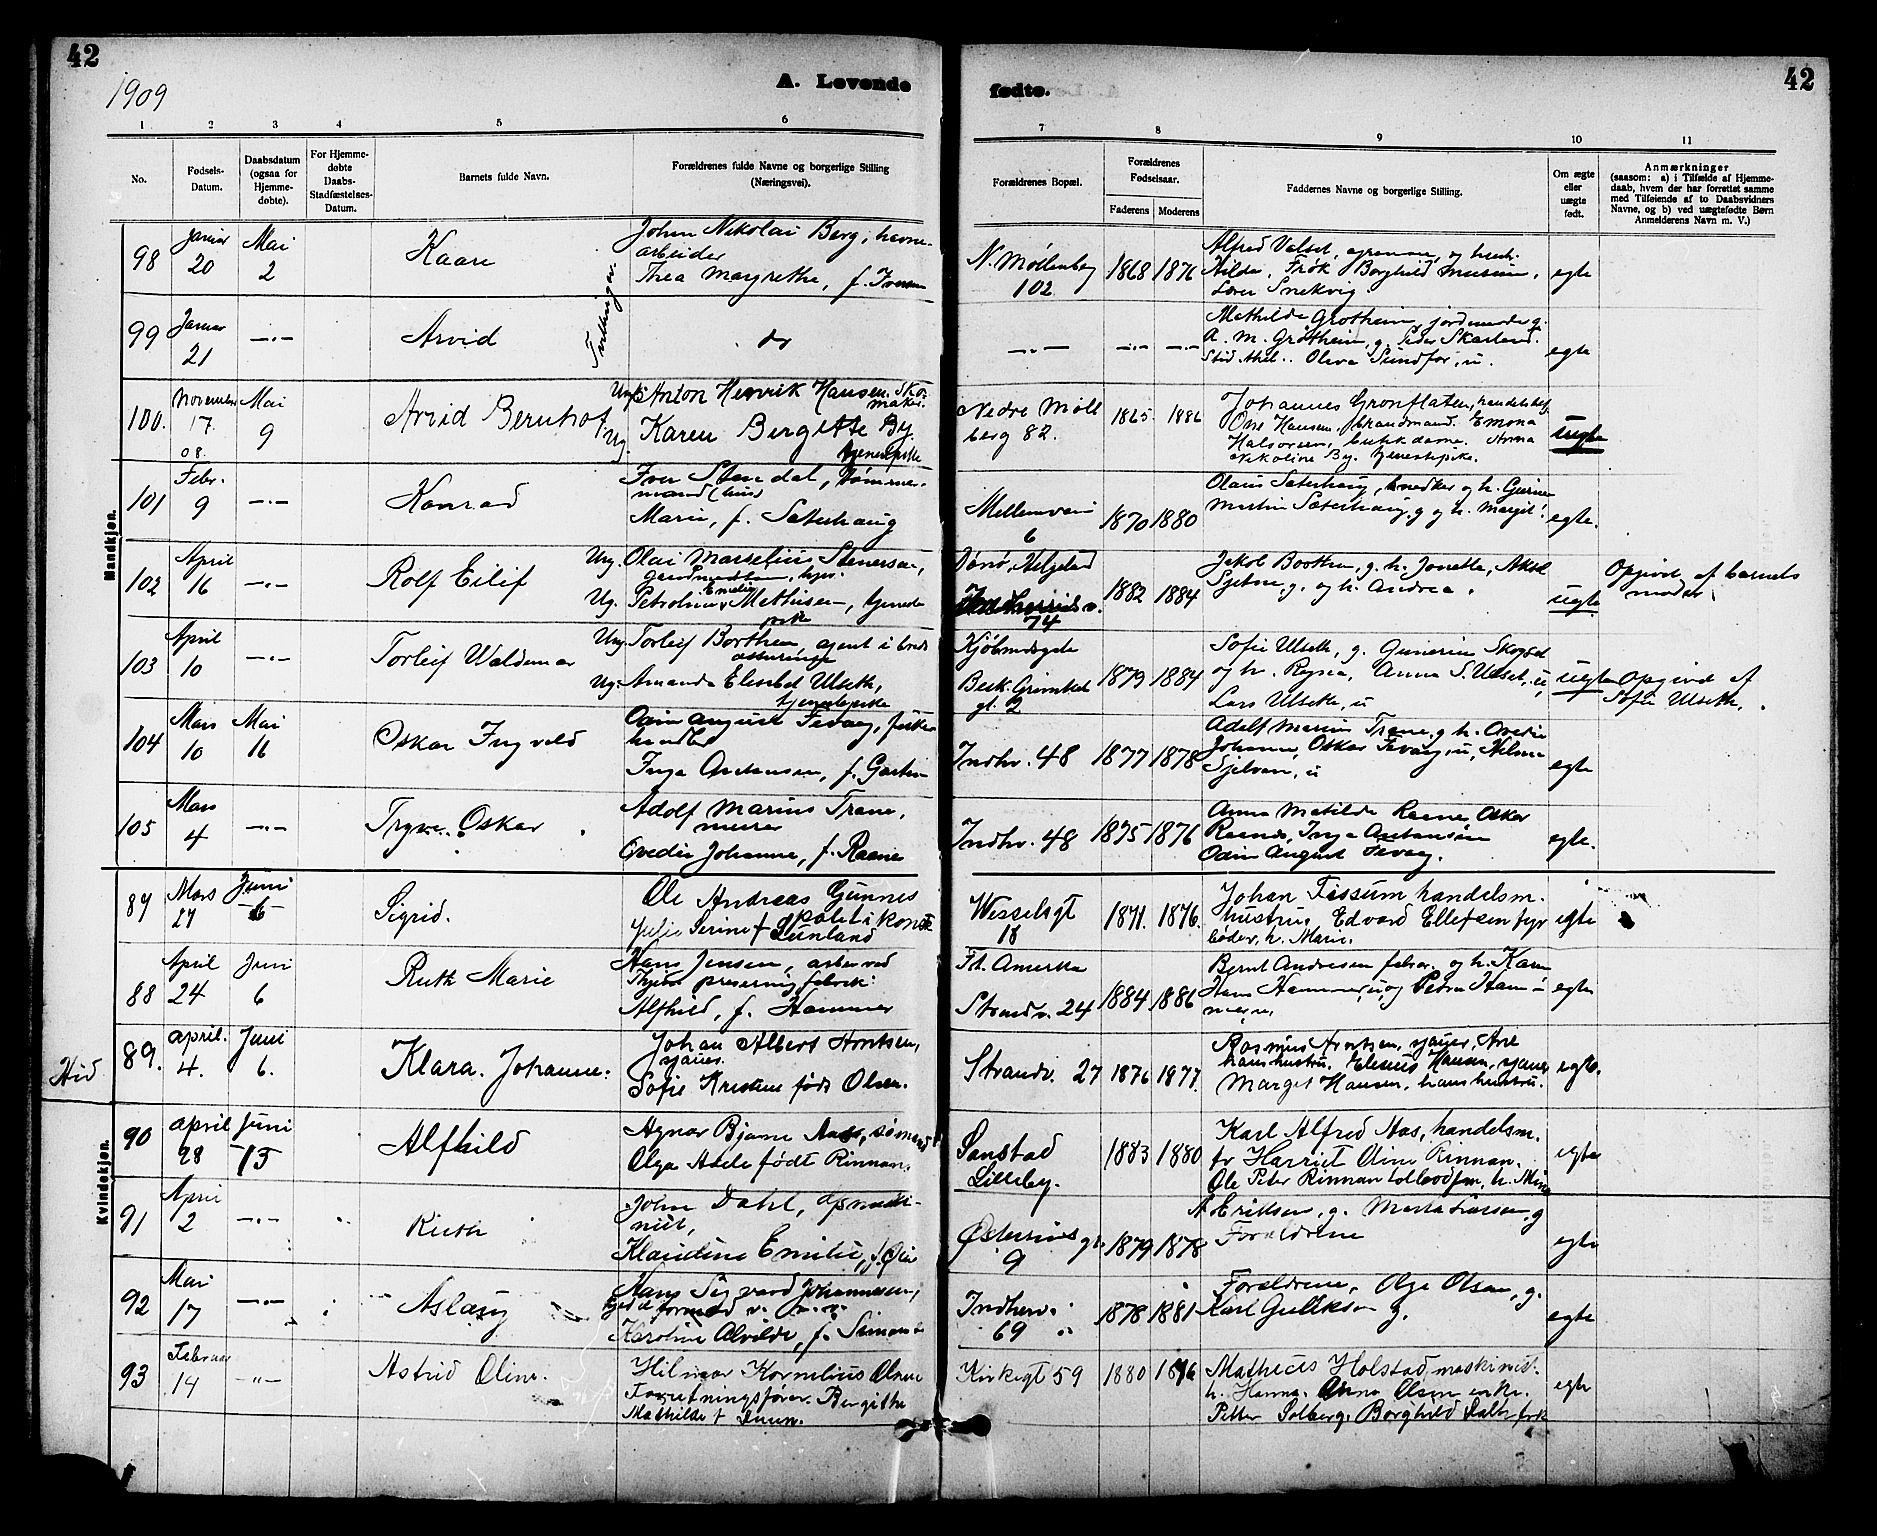 42
1909
A. Levende
fødte.
42
1 2 3 4 5 6 7 8 9 10 11
No.
Fødsels-
Datum.
Daabsdatum
(ogsaa for
Hjemme-
døbte).
For Hjemme-
døbte
Daabs-
Stadfæstelses-
Datum.
Barnets fulde Navn.
Forældrenes fulde Navne og borgerlige Stilling
(Næringsvei).
Forældrenes Bopæl.
Forældrenes
Fødselsaar.
Faderens Moderens
Faddernes Navne og borgerlige Stilling.
Om ægte
eller
uægte
født.
Anmærkninger
(saasom: a) i Tilfælde af Hjemme-
daab, hvem der har forrettet samme
med Tilføiende af to Daabsvidners
Navne, og b) ved uægtefødte Børn
Anmelderens Navn m. V.)
Mandkjøn.
98
Januar
20
Mai
2
Kaare
John Nikolai Berg, havne-
arbeider
Thea Margrethe, f. Iversen
Tvillinger
N. Møllenberg
102
1868 1876
Alfred Valset, og hustr.
Hilda, Frøk Borghild
Lærer Snekvig.
egte
99
Januar
21
Arvid
do
Mathilde Grøtheim, jordmoder g.
A. M. Grøtheim, g. Peder Skarland
Oliva Sundfør, u.
egte
100.
November
17.
08.
Mai
9
Arvid Bernhof.
Ungk. Anton Henrik Hansen. Sko-
maker.
Ug. Karen Bergitte By.
tjenestpike
Nedre Møll
berg 82.
1865. 1886
Johannes Grønflaten, handelsbetj.
One Hansen, brandmand. Emma
Halvorsen, butikdame. Anna
Nikoline By. tjenestepike.
uegte
101
Febr.
9
Konrad
Iver Stendal, tømmer-
mand (hus)
Marie, f. Sæterhaug
Mellemveien
6
1870 1880
Olaus Sæterhaug, snedker og h.
Martin Sæterhaug, g og h. Margit.
egte.
102
April
16
Rolf Eilif
Ung. Olai Marselius Stenersen,
Ug. Petroline Emelie Mathisen, tjeneste
pike
Dønø, Helgeland
74
1882 1884
Jakob Boothen, g. h. Jonetta, Aksel
g. og h. Andrea.
uegte
Opgivd. af barnets
moder.
103
April
10
Torleif Waldemar
Ung. Torleif Borthen agent i brand
assurance
Ug. Amanda Elisabet Ulseth,
tjenestepike
Kjøbmdsgate
Besk. Grimkel
gt. 2
1879 1884
Sofie Ulseth, g. Gunerius Skogset
og h. Regina, Anna S. Ulset, u,
Lars Ulseth, u
uegte
Opgivd af
Sofie Ulseth.
104
Mars
10
Mai
16
Oskar Ingvald
Odin August Tevaag, fiske-
handler
Inga Antonsen, f.
Indhv. 48
1877 1878
Adolf Marius Trane, g h. Ovedie
Johanne, Oskar Tevaag, u, Hilma
u
egte
105
Mars
4
Trygve Oskar
Adolf Marius Trane,
murer
Ovedie Johanne, f. Raane
Indhv. 48
1875 1876
Anna Matilde Raane, Oskar
Raane, Inga Antonsen
Odin August Tevaag.
egte.
Kvindekjøn.
87
Mars
27
Juni
6
Sigrid.
Ole Andreas Gunnes
politikonst.
Julie Serine f. Sunland
Wesselsgt
18
1871. 1876.
Johan Fissum handelsm.
hustru, Edvard Ellefsen fyr
bøder, h. Marie.
egte
88
April
24
Juni
6
Ruth Marie
Hans Jensen, arbr ved
preserving fabrik
Alfhild, f. Hammer
Fh. Amerika
Strandv. 24
1884 1886
Bernt Andresen og h. Karen
Hans Hammer, u, og Petra Ham-
mer u.
egte
Hid
89.
april.
4.
Juni
6.
Klara. Johanne.
Johan Albert Arntsen,
sjauer.
Sofie Kristine født Olsen.
Strandv. 27
1876 1877.
Rasmus Arntsen, sjauer, Ane
hans hustru. Elenus Hansen, sjauer
Marget Hansen, hans hustru.
egte.
90
april
28
Juni
13
Alfhild
Agnar Bjarne Aas, sømand
Olga Adele født Rinnan.
Sanstad
Lilleby.
1883 1880
Karl Alfred Aas, handelsm.
fr Harriet Oline Rinnan.
Ole Peter Rinnan toldbodfm, h. Mina
egte
91
April
2
Ruth
John Dahl, opsmaski-
nist,
Klaudine Emilie, f. Øien
Østersunds gt.
9
1879 1878
A Eriksen, g. Marta Larsen, g
Forældrene
egte
92
Mai
17
Aslaug
Hans Sigvard Johannessen,
formand v.
Karoline Alvilde, f.
Indherv.
69
1878 1881
Forældrene, Olga Olsen, g.
Karl Gulliksen g.
egte
93
Februar
14
Astrid Oline.
Hilmar Kornelius Olsen
Forretningsfører. Bergithe
Mathilde f Duun.
Kirkegt 59
1880 1876
Matheus Holstad, maskinist.
h. Hanna. Anna Olsen enke.
Petter Solberg, Borghild Dahl frk
egte